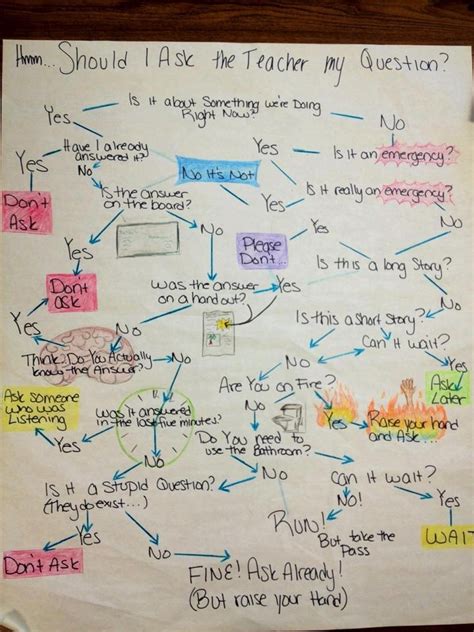 Hmm... Should I Ask the Teacher my Question?
Is it about Something we're Doing
Right Now?
Yes
No
Have I already
answered it?
Yes
No
Yes
Is it an emergency?
No It's Not
Is it really an emergency?
Yes
No
Don't
Ask
Is the answer
on the board?
Yes
No
Please
Don't...
Yes
Is this a long Story?
Don't
ask
Was the answer
on a handout?
Yes
No
Is this a short Story?
Can it wait?
Yes
No
Think. Do You Actually
know the Answer?
No
No
Are You on Fire?
Yes
Ask
Later
Ask someone
who was
Listening
Was it answered
in the last five minutes?
No
Yes
Raise your hand
and Ask...
Yes
Do You need to
use the Bathroom?
No
No
Can it wait?
Is it a Stupid Question?
(They do exist...)
No!
Yes
Run!
But take the
Pass
WAIT
Yes
No
Don't Ask
FINE! Ask Already!
(But raise your Hand)